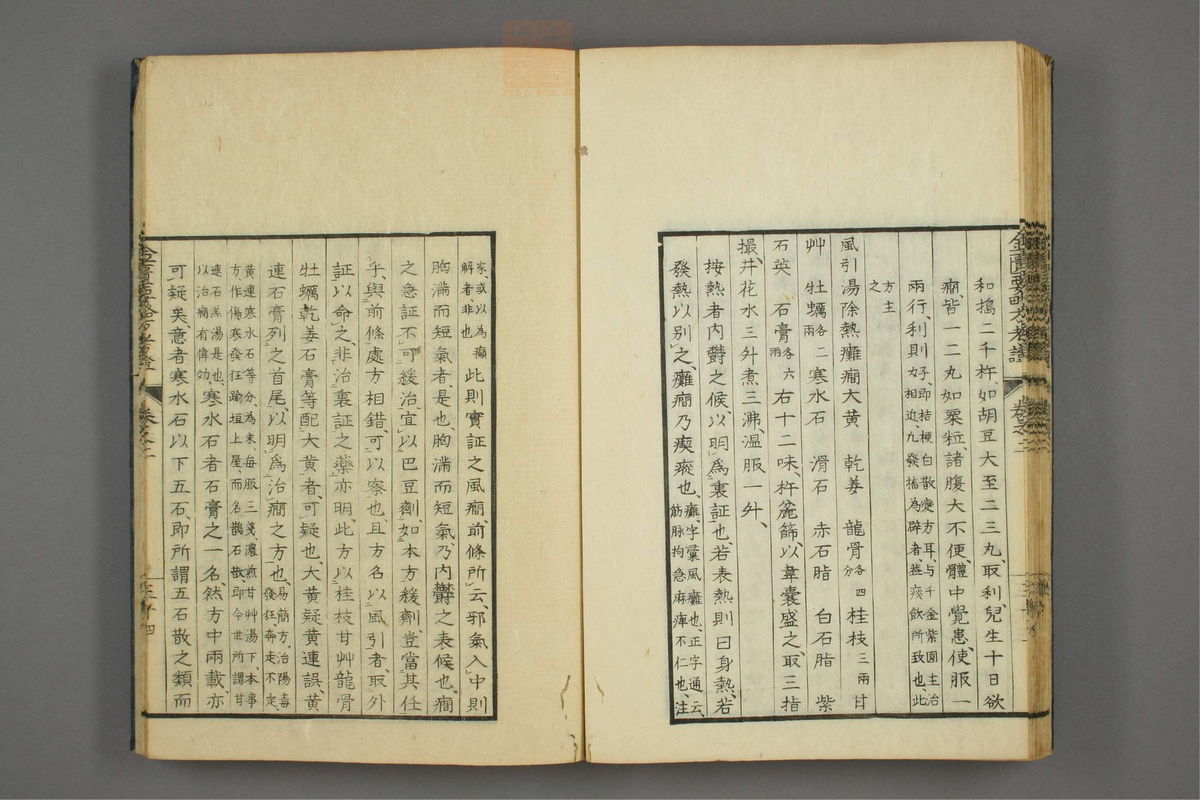 和搗二千杵如胡豆大至二三丸取利兒生十日欲
癇皆一二丸如粟粒諸腹大不便體中覺患使服一
兩行利則
子即桔梗白散変方耳与千金紫圓主治
力相近九發搐為癖者蓋痰飲所致也此
方主
之
風引湯除熱癱癇大黃 乾姜 龍骨各四分桂枝三兩甘
艸 牡蠣各二兩寒水石 滑石 赤石脂 白石脂 紫
石英 石膏各六兩右十二味杵麁篩以韋囊盛之取三指
撮井花水三升煮三沸溫服一升
按熱者內欝之候以明爲裏証也若表熱則曰身熱若
發熱以別之癱癇乃瘈瘲也
癱字彙風癱也正字通云
筋脉拘急麻痺不仁也注
家或以為癲
解者非也
此則實証之風癇前條所云邪氣入中則
胸滿而短氣者是也胸滿而短氣乃內欝之表候也癇
之急証不可緩治宜以巴豆劑如本方緩劑豈當其任
乎與前條處方相錯可以察也且方名以風引者取外
証以命之非治裏証之藥亦明此方以桂枝甘艸龍骨
牡蠣乾姜石膏等配大黃者可疑也大黃疑黃連誤黃
連石膏列之首尾以明爲治癇之方也
易簡方治陽毒
發狂奔走不定
黃連寒水石等分為末每服三箋濃煎甘艸湯下本事
方作傷寒發狂踰垣上屋而名鵲石散即今世所謂甘
連石羔湯是也
以治癇有傳効
寒水石者石膏之一名然方中兩載亦
可疑矣意者寒水石以下五石即所謂五石散之類而
卷之二